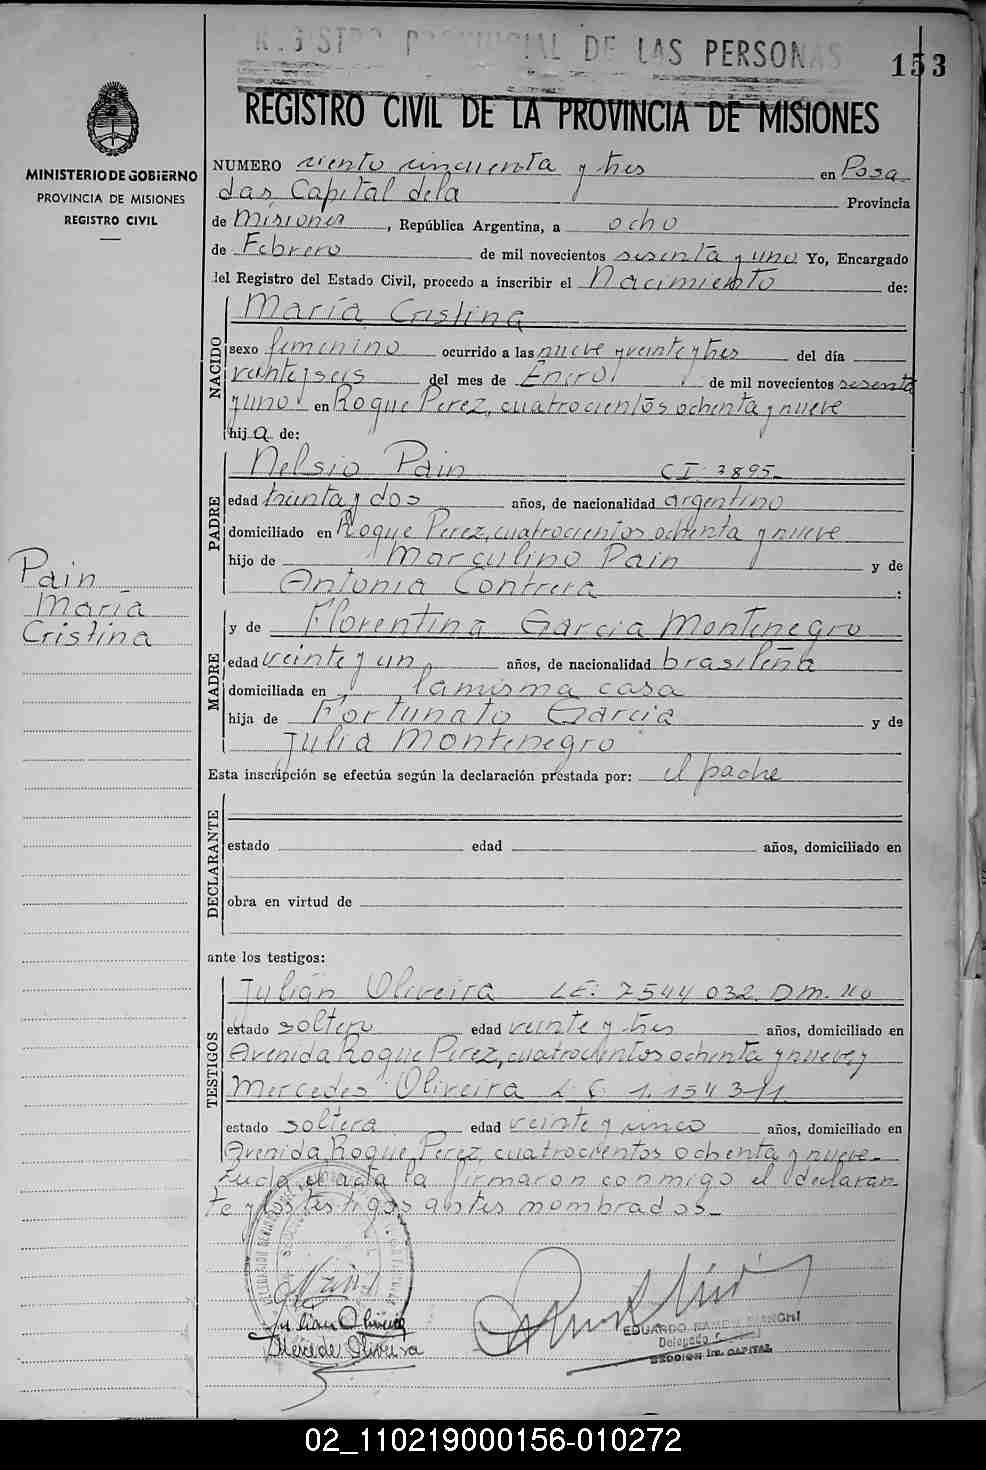 REGISTRO PROVINCIAL DE LAS PERSONAS
153
REGISTRO CIVIL DE LA PROVINCIA DE MISIONES
MINISTERIO DE GOBIERNO
PROVINCIA DE MISIONES
REGISTRO CIVIL
NUMERO ciento cincuenta y tres en Posa
das Capital de la Provincia
de Misiones, República Argentina, a ocho
de Febrero de mil novecientos sesenta y uno Yo, Encargado
del Registro del Estado Civil, procedo a inscribir el Nacimiento de:
NACIDO
María Cristina
sexo femenino ocurrido a las nueve y veinte y tres del día
veinte y seis del mes de Enero de mil novecientos sesenta
y uno en Roque Perez, cuatrocientos ochenta y nueve
hija de:
PADRE
Nelsio Pain CI 3895-
edad trinta y dos años, de nacionalidad argentino
domiciliado en Roque Perez, cuatrocientos ochenta y nueve
hijo de Marculino Pain y de
Antonia Contrera :
Pain
María
Cristina
MADRE
y de Florentina Garcia Montenegro
edad veinte y un años, de nacionalidad brasileña
domiciliada en la misma casa
hija de Fortunato Garcia y de
Julia Montenegro
Esta inscripción se efectúa según la declaración prestada por: el padre
DECLARANTE
estado edad años, domiciliado en
obra en virtud de
ante los testigos:
TESTIGOS
Julián Oliveira LE: 7544032. Dm. 40
estado soltero edad veinte y tres años, domiciliado en
Avenida Roque Perez, cuatrocientos ochenta y nueve y
Mercedes Oliveira L C 1.154 311.
estado soltera edad veinte y cinco años, domiciliado en
Avenida Roque Perez, cuatrocientos ochenta y nueve-
Leida el acta la firmaron conmigo el declaran-
te y los testigos antes nombrados-
Julian Oliveira
Mercede Oliveira
EDUARDO BIANCHI
Delegado
SECCION 1ra. CAPITAL
02_110219000156-010272